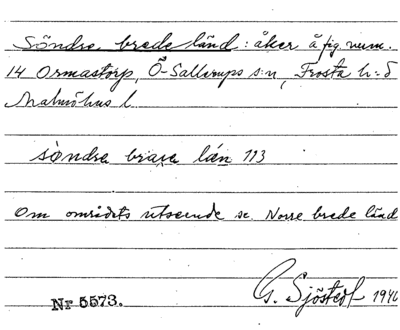 Söndre brede länd: åker å fig. num.
14 Ormastorp, Ö-Sallerups s:n, Frosta h:d
Malmöhus l.
söndre brare län 113
Om områdets utseende se Norre brede länd
G. Sjöstedt 1940
Nr 5573.